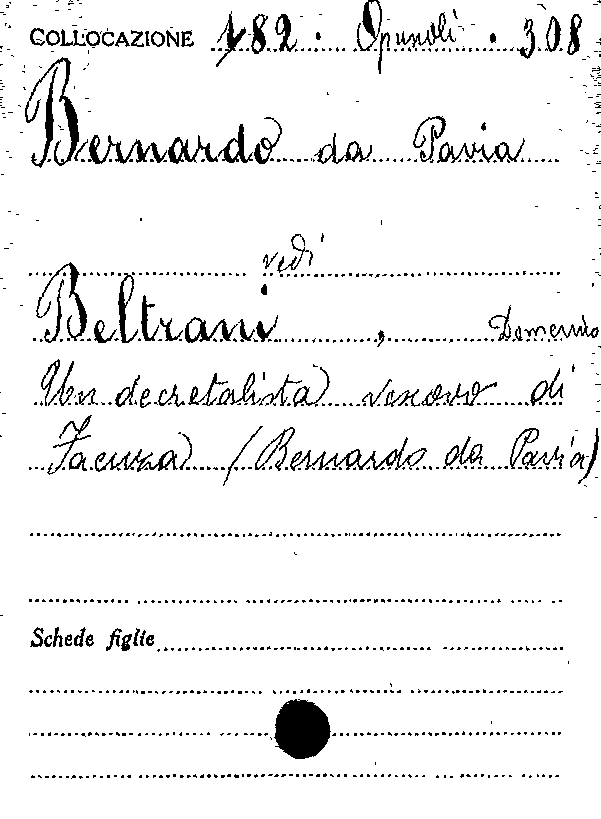 COLLOCAZIONE 182 · Opuscoli · 308
Bernardo da Pavia
vedi
Beltrani, Domenico
Un decretalista vescovo di
Faenza (Bernardo da Pavia)
Schede figlie